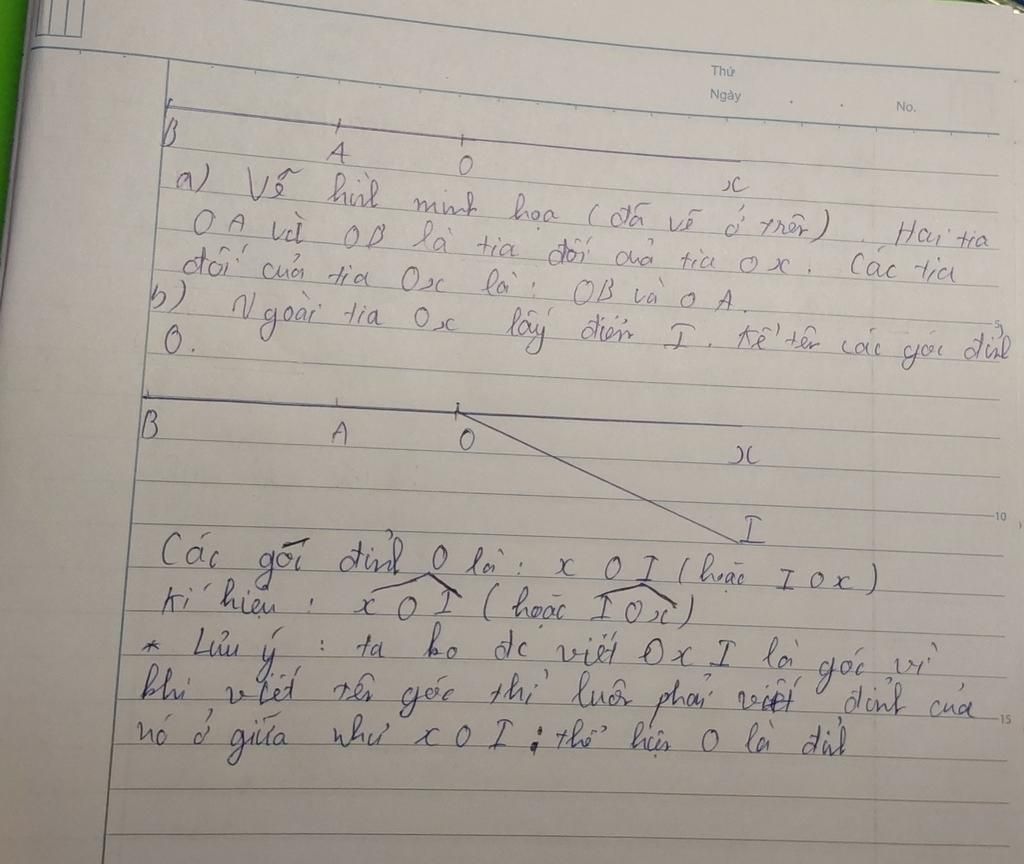 Thứ
Ngày
No.
B A O x
a) Vẽ hình minh họa (đã vẽ ở trên). Hai tia
OA và OB là tia đối của tia Ox. Các tia
đối của tia Ox là: OB và OA.
b) Ngoài tia Ox lấy điểm I. Kể tên các góc đỉnh
O.
5
B A O x
I
10
Các góc đỉnh O là: x O I (hoặc I O x)
Kí hiệu: x O I (hoặc I O x)
* Lưu ý: ta ko đc viết O x I là góc vì
khi viết tên góc thì luôn phải viết đỉnh của
15
nó ở giữa như x O I; thể hiện O là đỉnh